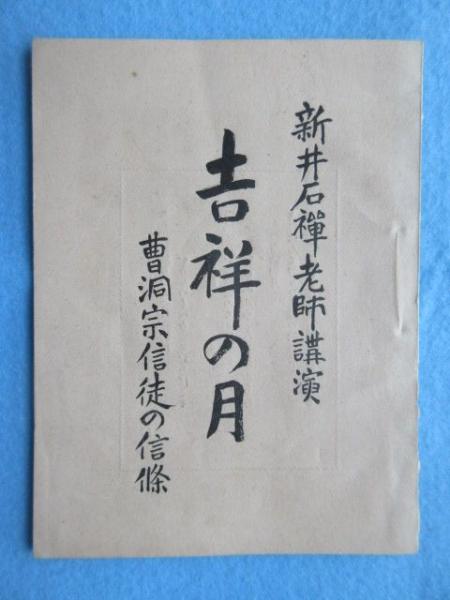 新井石禅老師講演
吉祥の月
曹洞宗信徒の信條